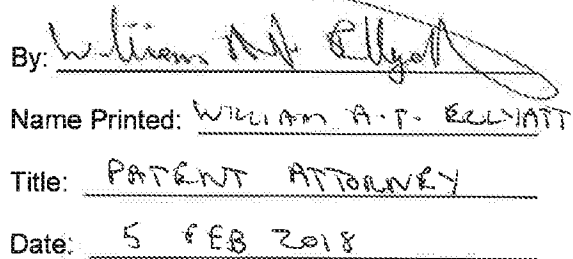 By: William
Name Printed: WILLIAM A.T. ELLYATT
Title: PATENT ATTORNEY
Date: 5 FEB 2018